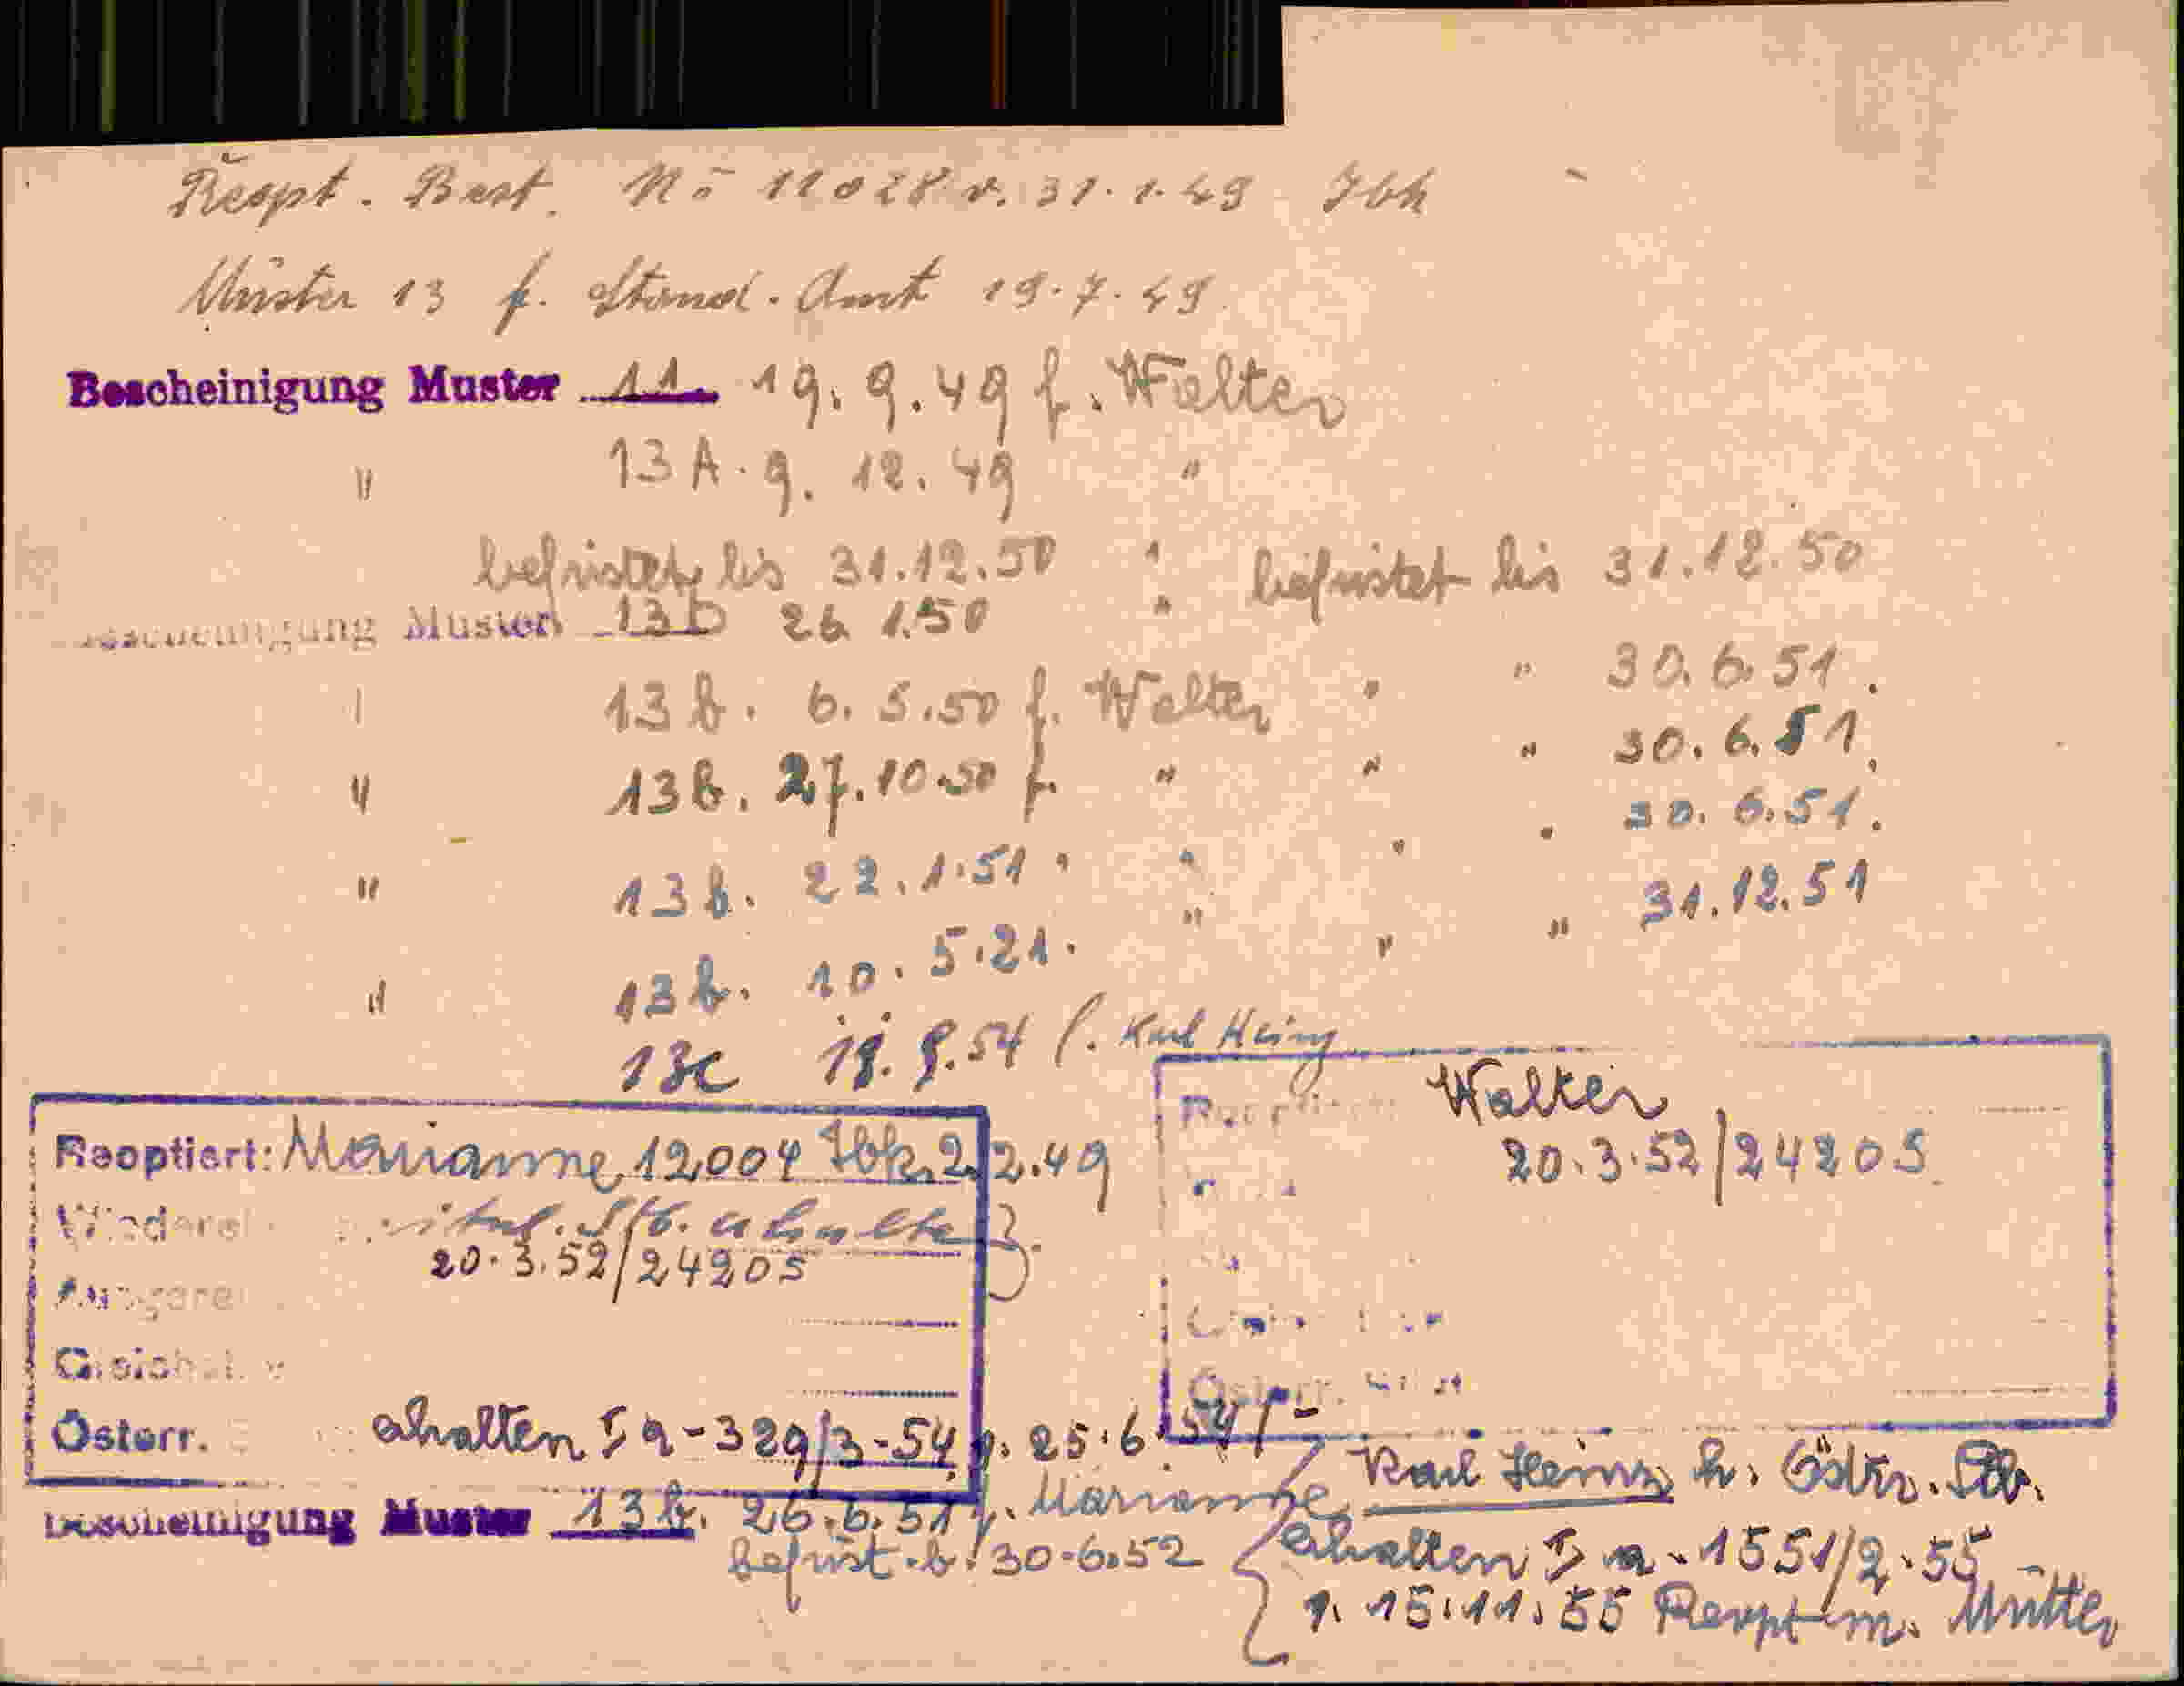 Reopt. Best. No 11028 v. 31.1.49 Ibk
Muster 13 f. Stand. Amt 19.7.49.
Bescheinigung Muster 11. 19.9.49 f. Walter
" 13 A. 9.12.49 "
befristet bis 31.12.50 " befristet bis 31.12.50
Bescheinigung Muster 13b 26 1.50 "
" 13b. 6.5.50 f. Walter " " 30.6.51.
" 13b. 27.10.50 f. " " " 30.6.51.
" 13b. 22.1.51 " " " " 30.6.51.
" 13b. 10.5.21. " " " 31.12.51
13c 18.9.54 f. Karl Heinz
Reoptiert: Marianne 12004 Ibk. 2.2.49
ital. Stb.
20.3.52/24205
Österr. erhalten I a-329/3-54 v. 25.6.54/-
Walter
20.3.52/24205
Österr.
Bescheinigung Muster 13b. 26.6.51 f. Marianne
befrist. b. 30.6.52
Karl Heinz h. Östr. Stb.
erhalten I a-1551/2-55
v. 15.11.55 Reopt m. Mutter